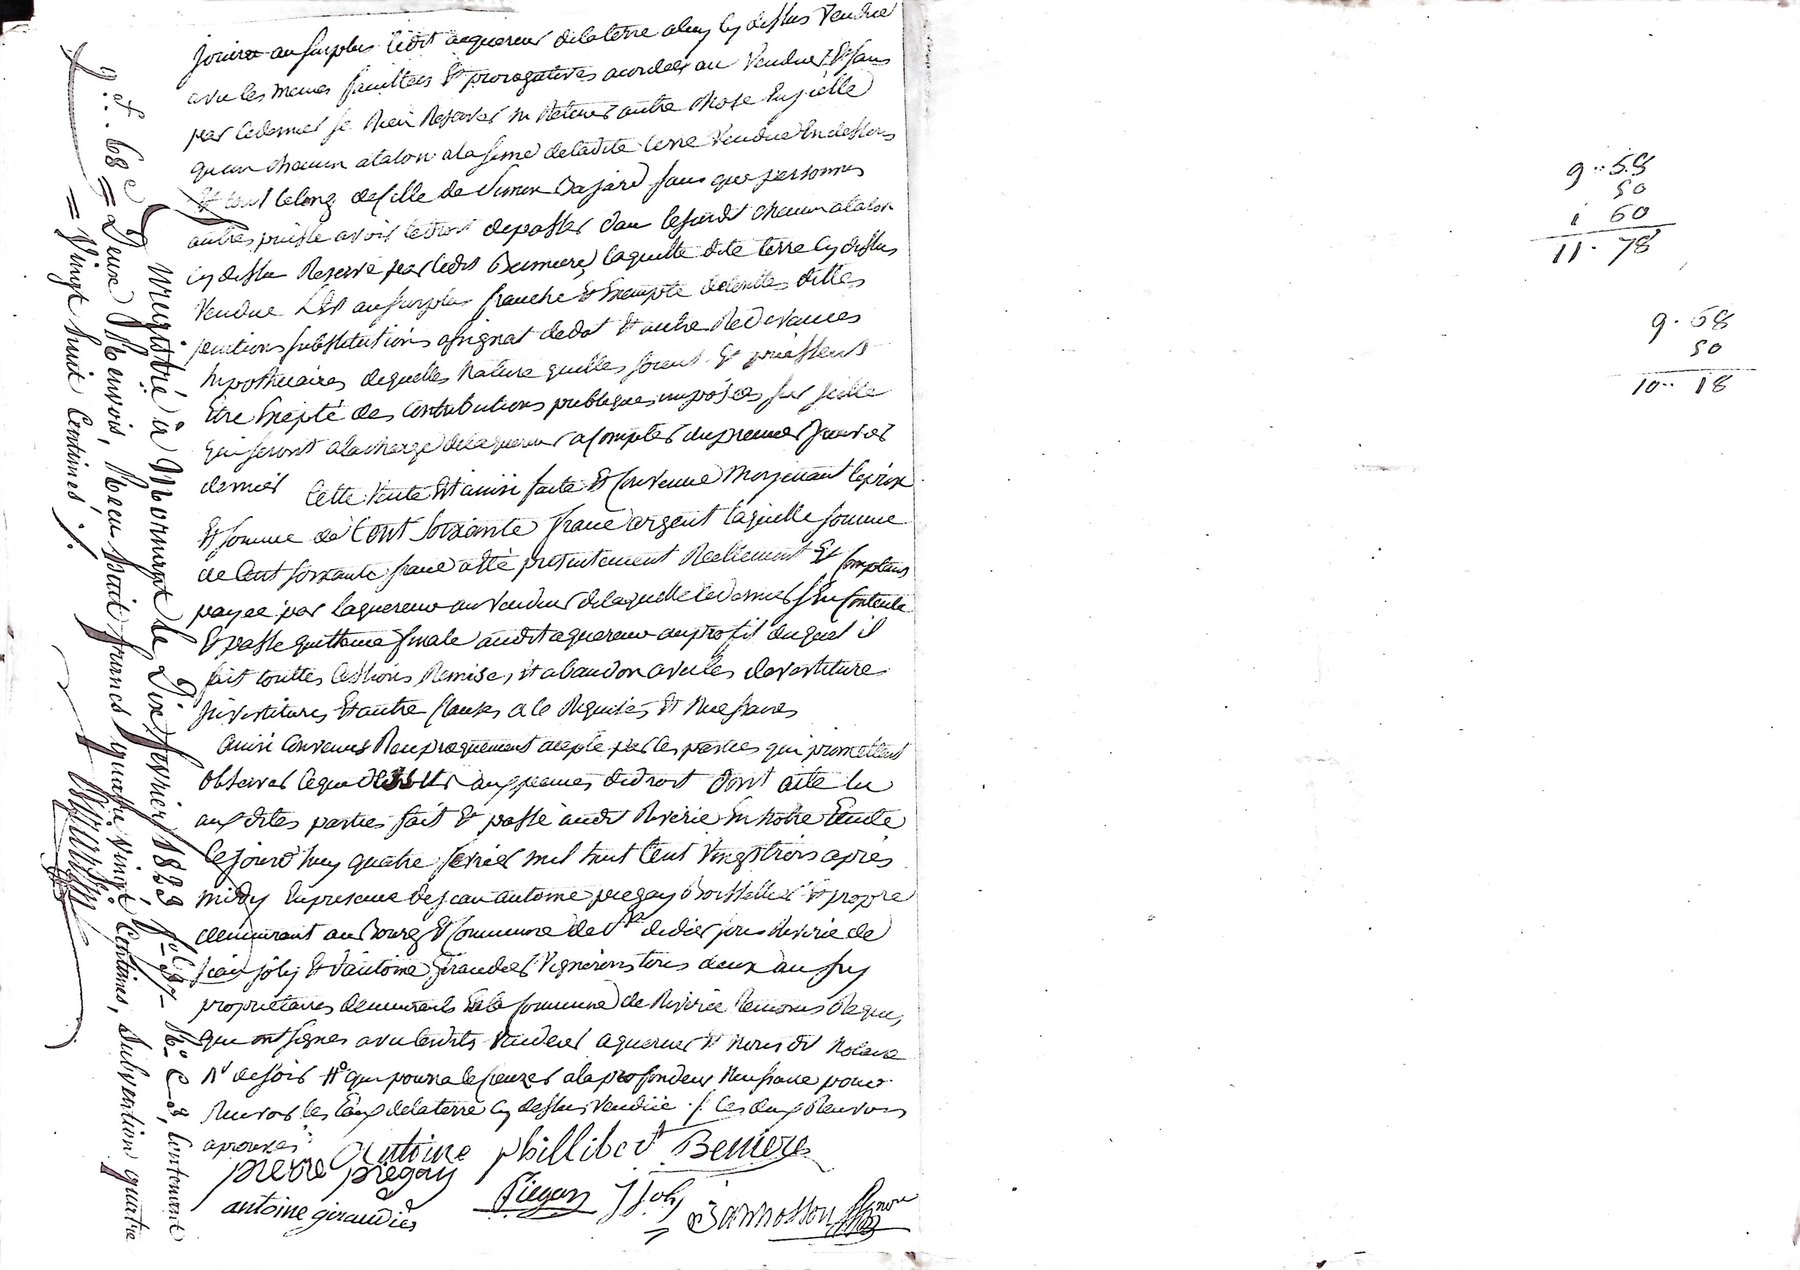 jouira au surplus ledit acquereur de la terre a luy cy dessus vendue
avec les memes facultées Et prorogatives acordées au Vendeur Et sans
par ce dernier se Rien Reserver ni Retenir autre Chose En jcelle
qu'un chemin a talon a la sime de ladite terre Vendue En dessous
Et tout le long de celle de Simon Bajard sans que personnes
autres puisse avoir le droit de passer dans le susdit chemin a talon
cy dessus Reservé par ledit Benniere laquelle dite terre cy dessus
Vendue Est au surplus franche Et Exempte de toutes dettes
pentions substitutions assignat de dot Et autre Redevances
hypothecaires de quelles Nature quelles soient Et puissent
Etre Exepté des Contributions publiques imposées sur jcelle
qui seront a la charge de laquereur a Compter du premier Janvier
dernier Cette Vente Est ainsi faite Et Convenue Moyenant le prix
Et somme de Cent soixante franc argent laquelle somme
de Cent soixante franc a été presentement Reellement Et Comptant
payee par laquereur au Vendeur de laquelle ce dernier s'En Contente
Et passe quittance finale audit aquereur au profit duquel il
fait touttes Cessions Remises, Et abandon avec les devestiture
jnvestitures Et autre Clauses a ce Requises Et Necessaires
Ainsi Convenus Reciproquement acepté par les parties qui promettent
Observer ce que dessus aux peines de droit Dont acte lu
aux dites parties fait Et passé audit Riverie En notre Etude
Cejourd'huy quatre fevrier mil huit Cent Vingt trois après
midy En presence de jean antoine piegay Boisselier Et propre
demeurant au Bourg Et Commune de St didier sous Riverie de
jean joly Et d'antoine Giraudier Vignerons tous deux au
proprietaires demeurants En la Commune de Riverie temoins Requis
qui ont signés avec lesdits Vendeur aquereur Et Nous dit Notaire
qui pourra le Creuzer a la profondeur Necessaire pour
Recevoir les Eaux de la terre cy dessus Vendue ./. Ces deux Renvois
aprouvés
Antoine phillibert Benniere
pierre piegay
antoine giraudier
Piegay J Joly
Jamosson Nore
Enregistré à Mornant le Dix fevrier 1823 fo 87 Ro C 8, Contenant
Deux Renvois, Recu huit francs quatre vingt Centimes, Subvention quatre
= Vingt huit Centimes ./.
9 f. 68 c =
9 .. 58
50
1 60
11 . 78
9 . 68
50
10 .. 18